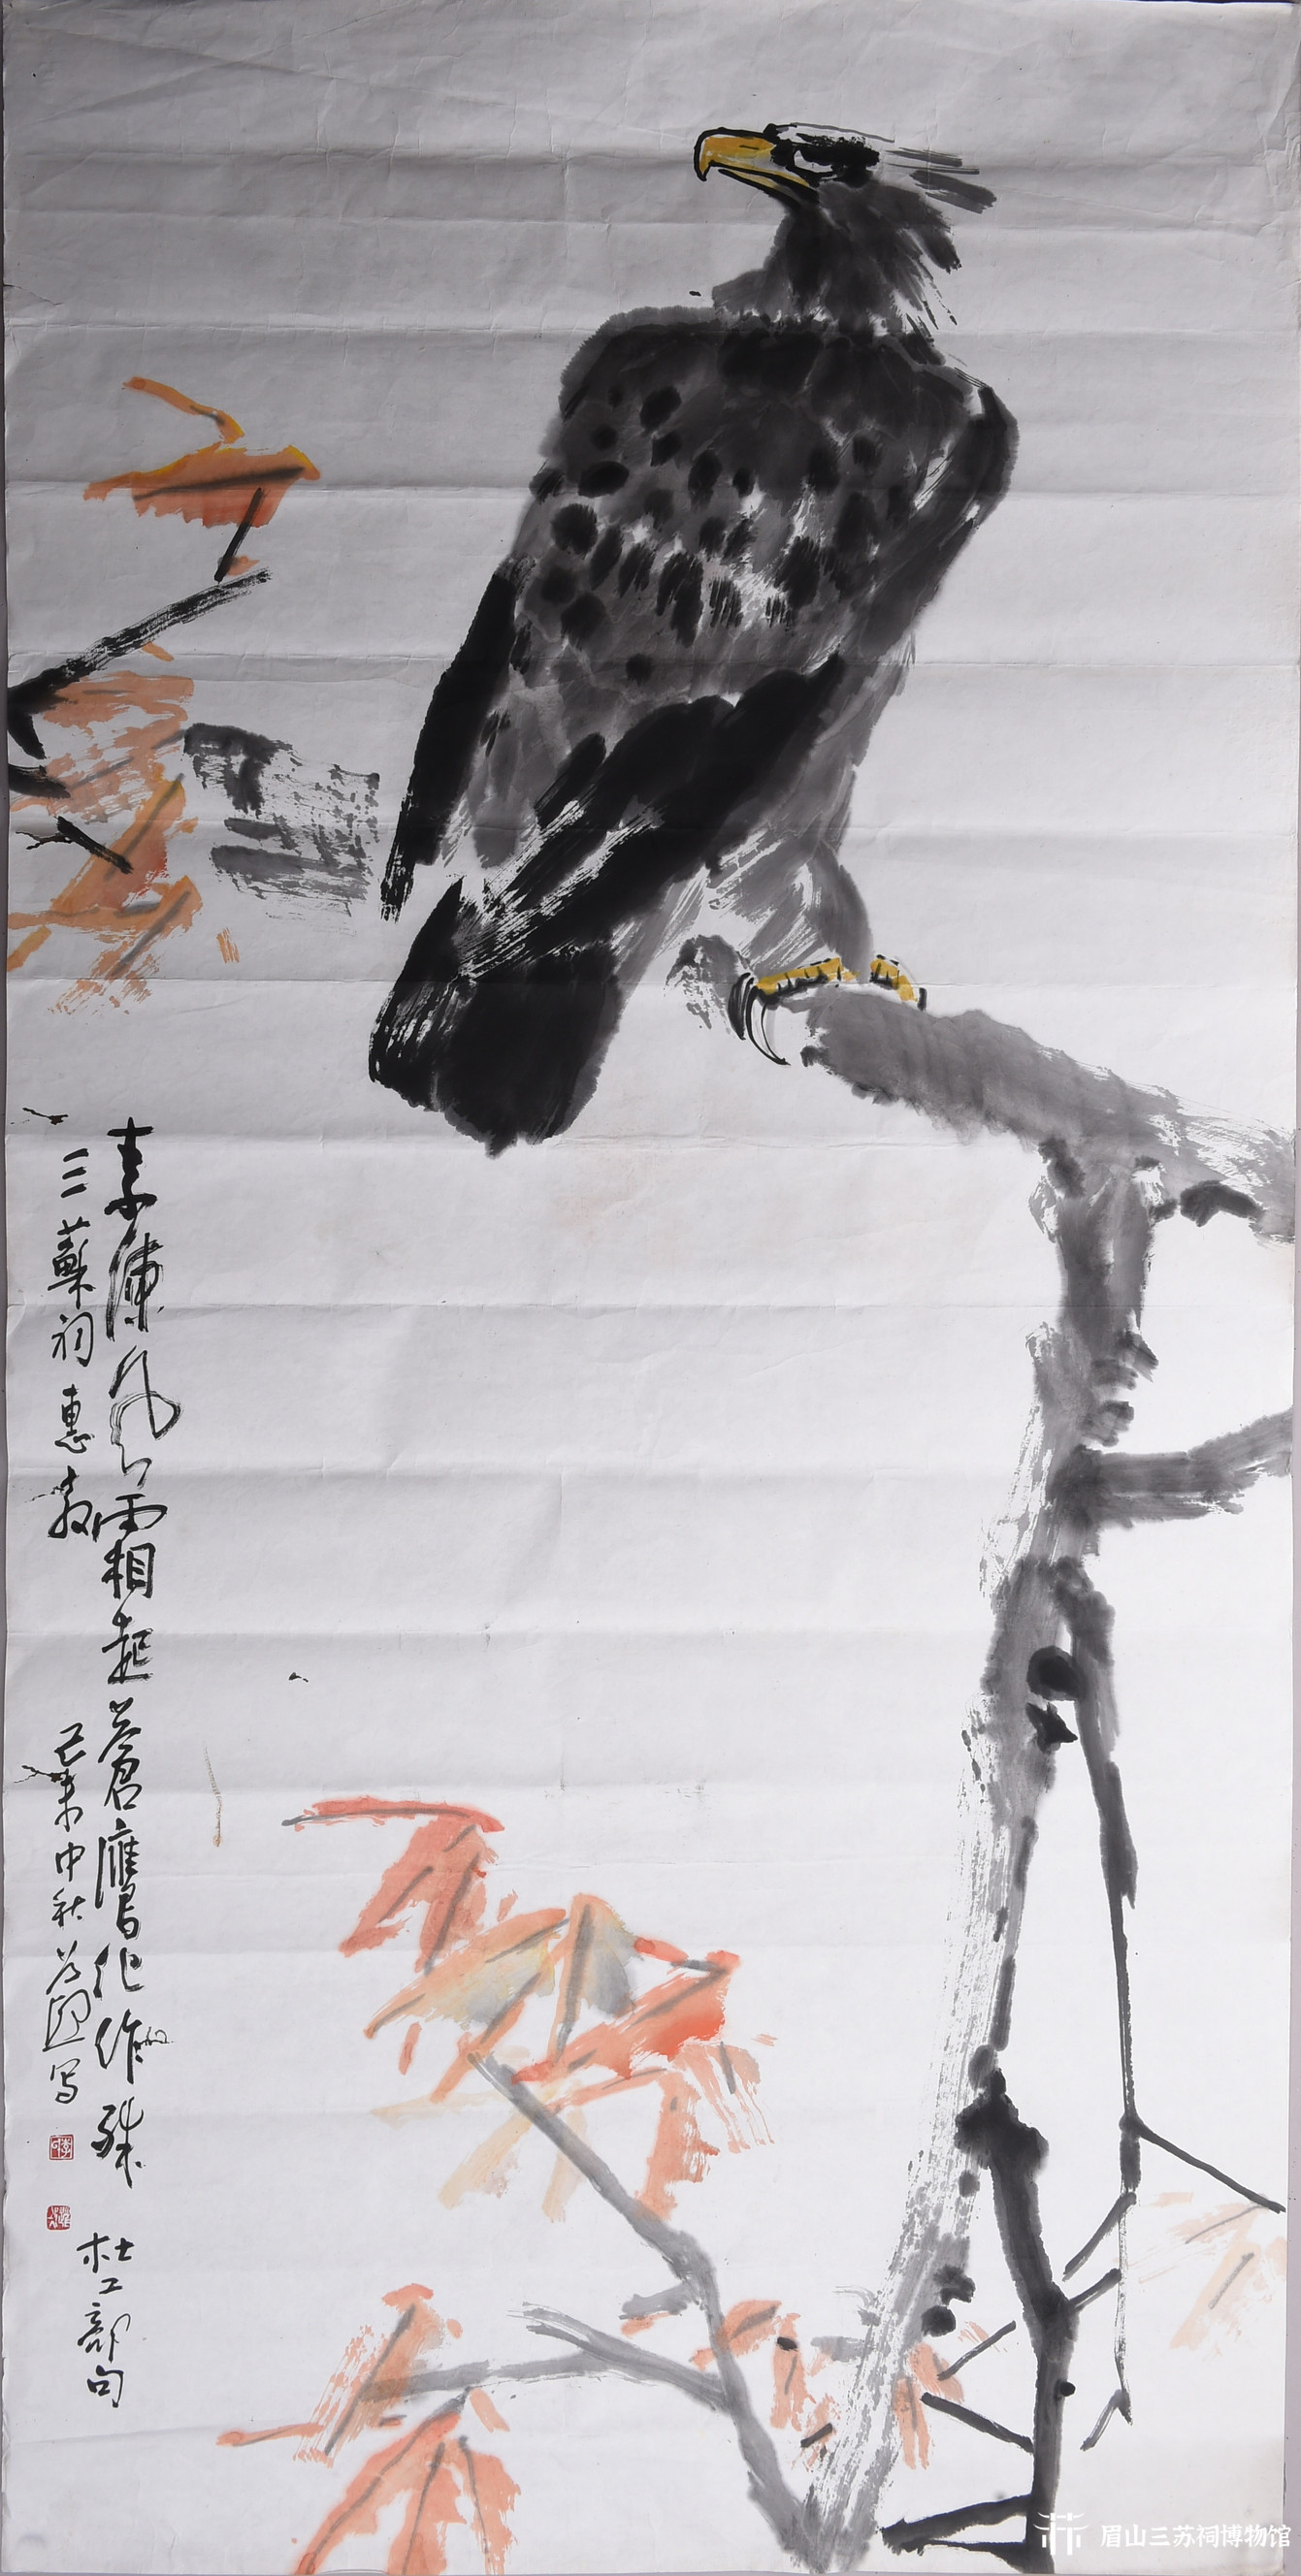 素練風霜起蒼鷹化作殊
杜工部句
三蘇祠惠教
己未中秋 写
眉山三苏祠博物馆